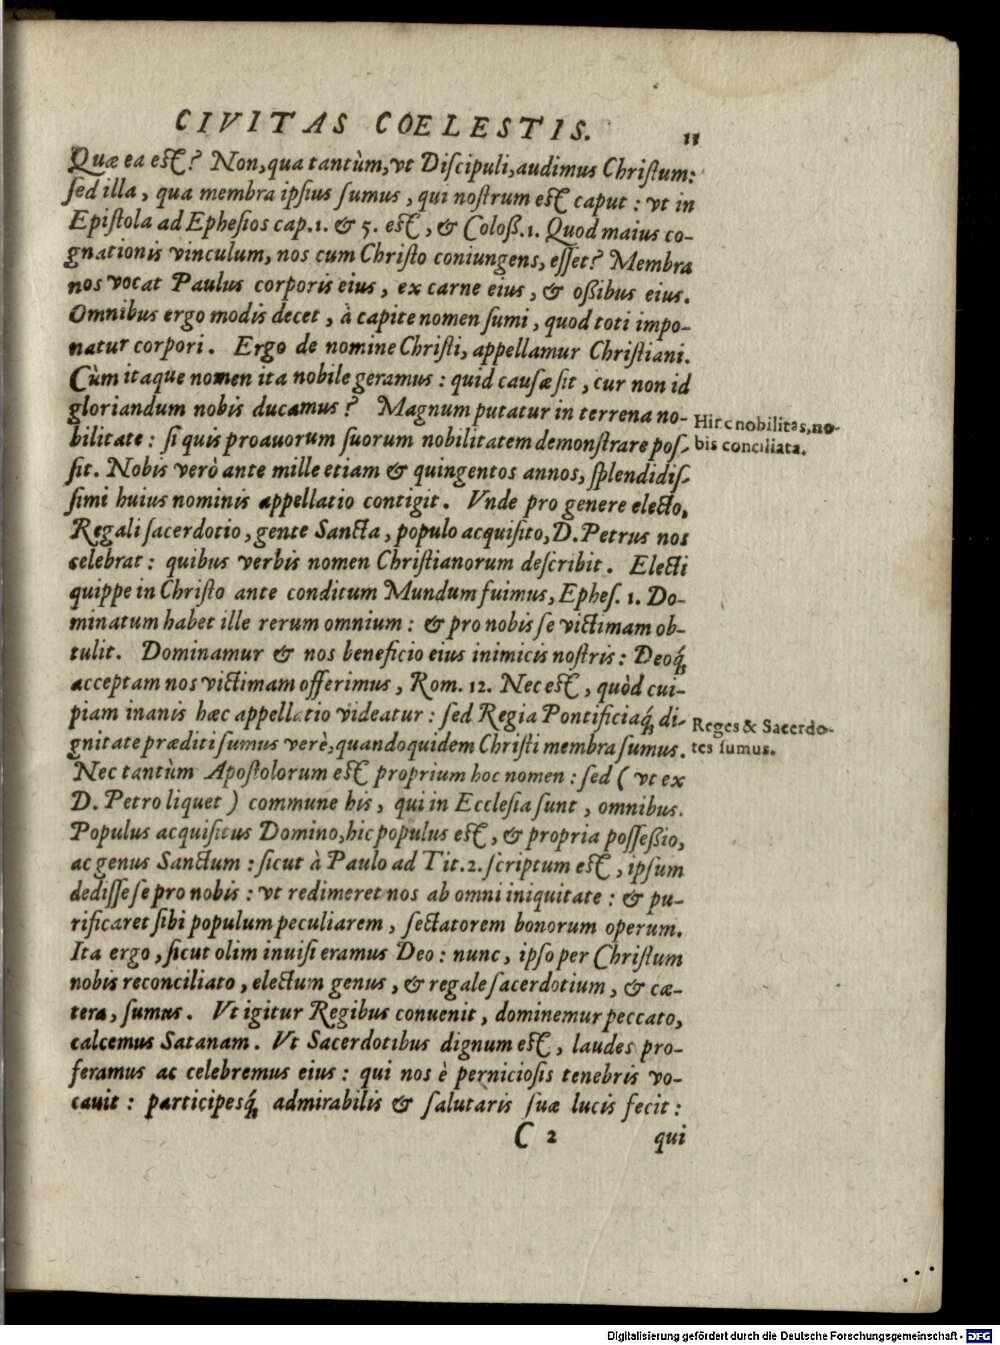 CIVITAS COELESTIS. 11
Quæ ea est? Non, qua tantùm, vt Discipuli, audimus Christum:
sed illa, qua membra ipsius sumus, qui nostrum est caput: vt in
Epistola ad Ephesios cap. 1. & 5. est, & Coloß. 1. Quod maius co-
gnationis vinculum, nos cum Christo coniungens, esset? Membra
nos vocat Paulus corporis eius, ex carne eius, & oßibus eius.
Omnibus ergo modis decet, à capite nomen sumi, quod toti impo-
natur corpori. Ergo de nomine Christi, appellamur Christiani.
Cùm itaque nomen ita nobile geramus: quid causæ sit, cur non id
gloriandum nobis ducamus? Magnum putatur in terrena no-
Hinc nobilitas, no-
bilitate: si quis proauorum suorum nobilitatem demonstrare pos-
bis conciliata.
sit. Nobis verò ante mille etiam & quingentos annos, splendidis-
simi huius nominis appellatio contigit. Vnde pro genere electo,
Regali sacerdotio, gente Sancta, populo acquisito, D. Petrus nos
celebrat: quibus verbis nomen Christianorum describit. Electi
quippe in Christo ante conditum Mundum fuimus, Ephes. 1. Do-
minatum habet ille rerum omnium: & pro nobis se victimam ob-
tulit. Dominamur & nos beneficio eius inimicis nostris: Deoq́;
acceptam nos victimam offerimus, Rom. 12. Nec est, quòd cui-
piam inanis hæc appellatio videatur: sed Regia Pontificiaq́; di-
Reges & Sacerdo-
gnitate præditi sumus verè, quandoquidem Christi membra sumus.
tes sumus.
Nec tantùm Apostolorum est proprium hoc nomen: sed (vt ex
D. Petro liquet) commune his, qui in Ecclesia sunt, omnibus.
Populus acquisitus Domino, hic populus est, & propria possessio,
ac genus Sanctum: sicut à Paulo ad Tit. 2. scriptum est, ipsum
dedisse se pro nobis: vt redimeret nos ab omni iniquitate: & pu-
rificaret sibi populum peculiarem, sectatorem bonorum operum.
Ita ergo, sicut olim inuisi eramus Deo: nunc, ipso per Christum
nobis reconciliato, electum genus, & regale sacerdotium, & cæ-
tera, sumus. Vt igitur Regibus conuenit, dominemur peccato,
calcemus Satanam. Vt Sacerdotibus dignum est, laudes pro-
feramus ac celebremus eius: qui nos è perniciosis tenebris vo-
cauit: participesq́; admirabilis & salutaris suæ lucis fecit:
C 2 qui
Digitalisierung gefördert durch die Deutsche Forschungsgemeinschaft - DFG